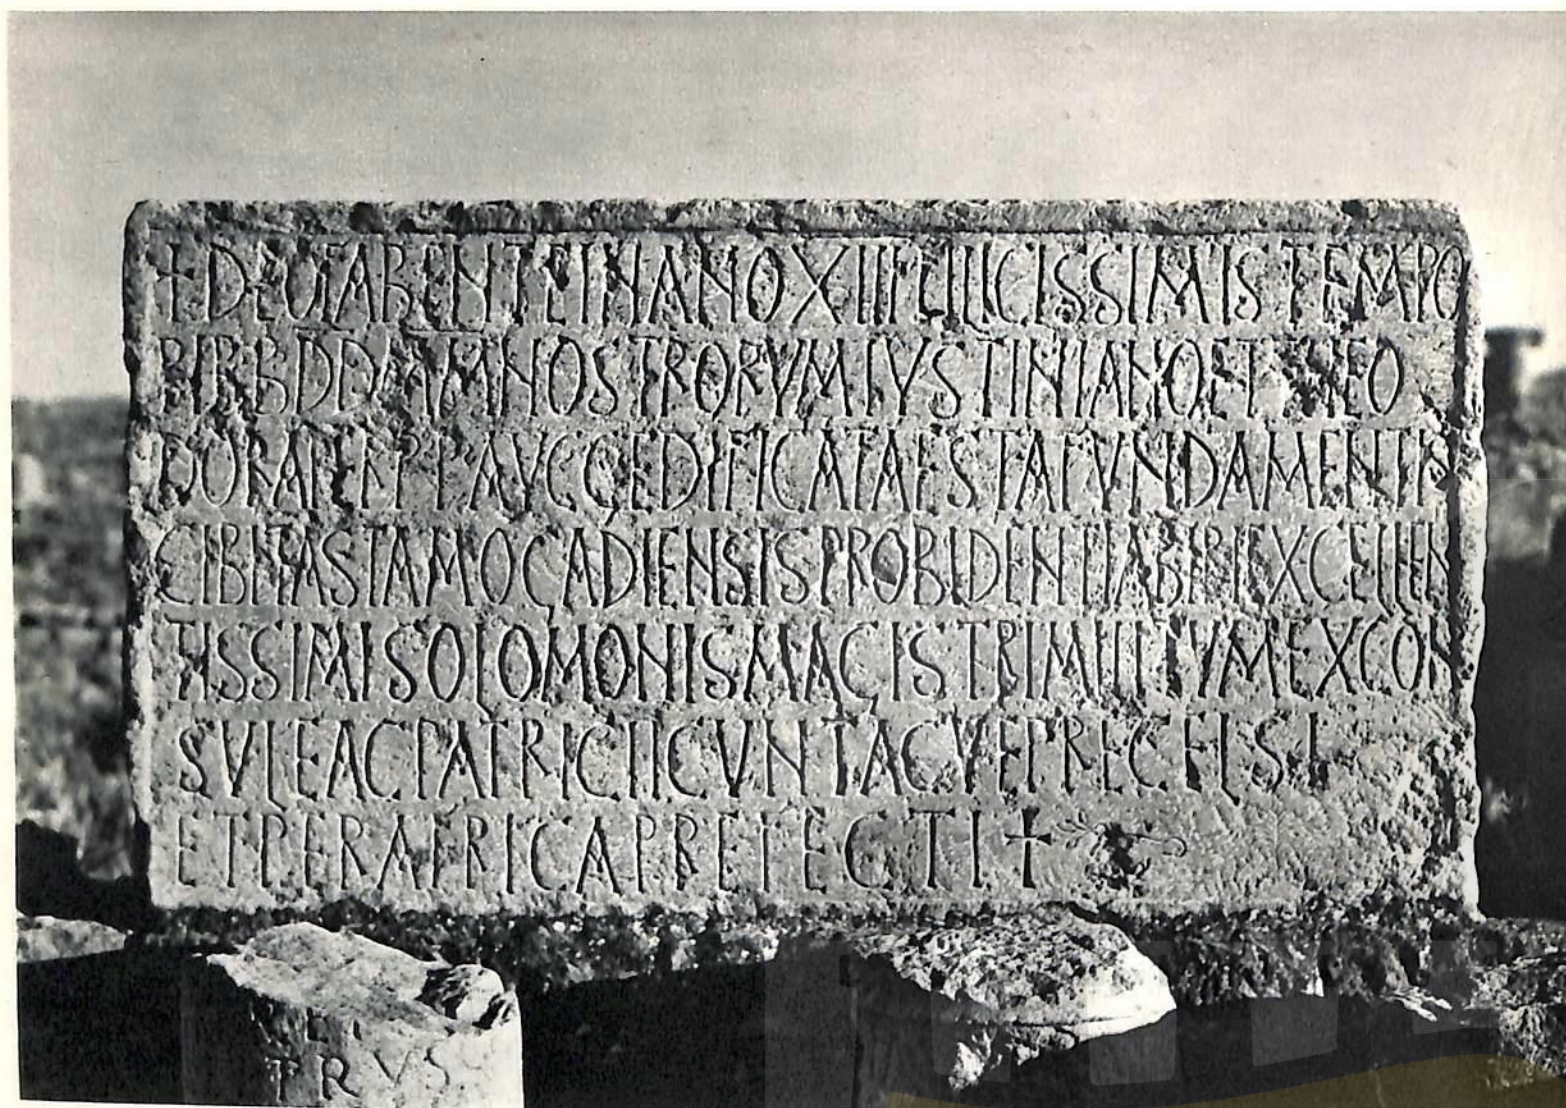 + DEO FABENTE IN ANO XIII FELICISSIMIS TEMPO
RIRB DD AMM NOSTRORUM IUSTINIANO ET TEO
DORA PERP P AVGG EDIFICATA EST A FUNDAMENTIS
CIBITAS TAMOGADIENSIS PROBIDENTIA BIRI EXCELLEN
TISSIMI SOLOMONIS MAGISTRI MILITUM EXCON
SULE AC PATRICII CUNTAQUE PRECELSI
ET PER AFRICA PREFECTI +
TRVS